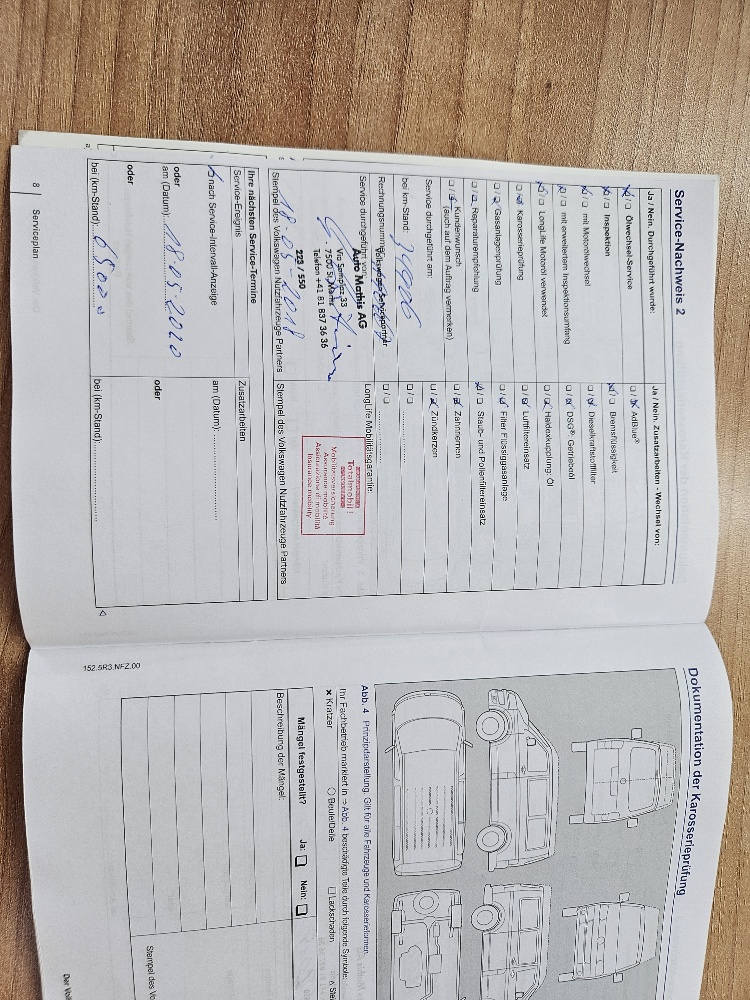 Service-Nachweis 2
Ja / Nein. Durchgeführt wurde:
Ölwechsel-Service
Inspektion
mit Motorölwechsel
mit erweitertem Inspektionsumfang
LongLife Motoröl verwendet
Karosserieprüfung
Gasanlagenprüfung
Reparaturempfehlung
Kundenwunsch
(auch auf dem Auftrag vermerken)
Service durchgeführt am:
bei km-Stand:
Rechnungsnummer
Service durchgeführt von:
Volkswagen Servicepartner
Auto Mathis AG
Via Somplaz 33
7500 St. Moritz
Telefon +41 81 837 36 36
223 / 550
18.05-2018
Stempel des Volkswagen Nutzfahrzeuge Partners
Ja / Nein. Zusatzarbeiten - Wechsel von:
AdBlue®
Bremsflüssigkeit
Dieselkraftstofffilter
DSG® Getriebeöl
Haldexkupplung Öl
Luftfiltereinsatz
Filter Flüssiggasanlage
Staub- und Pollenfiltereinsatz
Zahnriemen
Zündkerzen
LongLife Mobilitätsgarantie:
Totalmobil!
Mobilitätsversicherung
Assurance mobilité
Assicurazione di mobilità
Insurance mobility
Stempel des Volkswagen Nutzfahrzeuge Partners
Ihre nächsten Service-Termine
Service-Ereignis
nach Service-Intervall-Anzeige
oder
am (Datum): 18.05.2020
oder
bei (km-Stand): 65000
Zusatzarbeiten
am (Datum):
oder
bei (km-Stand):
8 Serviceplan
Dokumentation der Karosserieprüfung
Abb. 4 Prinzipdarstellung: Gilt für alle Fahrzeuge und Karosserieformen.
Ihr Fachbetrieb markiert in ⇒ Abb. 4 beschädigte Teile durch folgende Symbole:
× Kratzer ○ Beule/Delle □ Lackschaden
Mängel festgestellt? Ja: Nein:
Beschreibung der Mängel:
152.5R3.NFZ.00